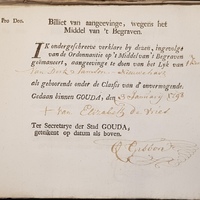 Pro Deo.
Billiet van aangeevinge, wegens het
Middel van 't Begraven.
IK ondergeschreve verklare by dezen, ingevolge
van de Ordonnantie op 't Middel van 't Begraven
geëmaneert, aangevinge te doen van het Lyk van
als gehoorende onder de Classis van d' onvermogende.
Gedaan binnen GOUDA, den January
van Elizabeth de Vries
Ter Secretarye der Stad GOUDA,
getekent op datum als boven.